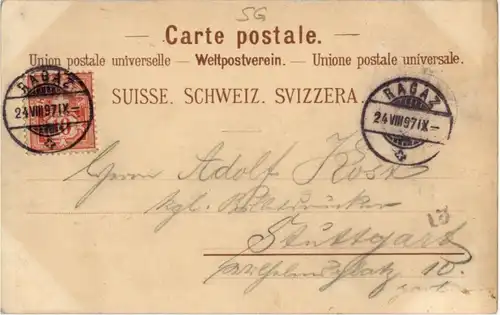 SG
Carte postale.
Union postale universelle – Weltpostverein. – Unione postale universale.
SUISSE. SCHWEIZ. SVIZZERA.
RAGAZ
24.VIII.97.IX–
RAGAZ
24.VIII.97.IX–
Herrn Adolf
kgl.
Stuttgart
Wilhelmsplatz 10.